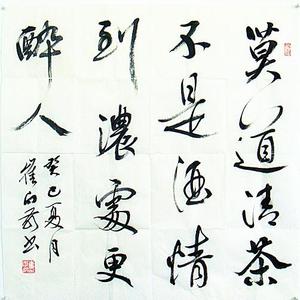 莫道清茶
不是酒情
到濃處更
醉人
癸巳夏月